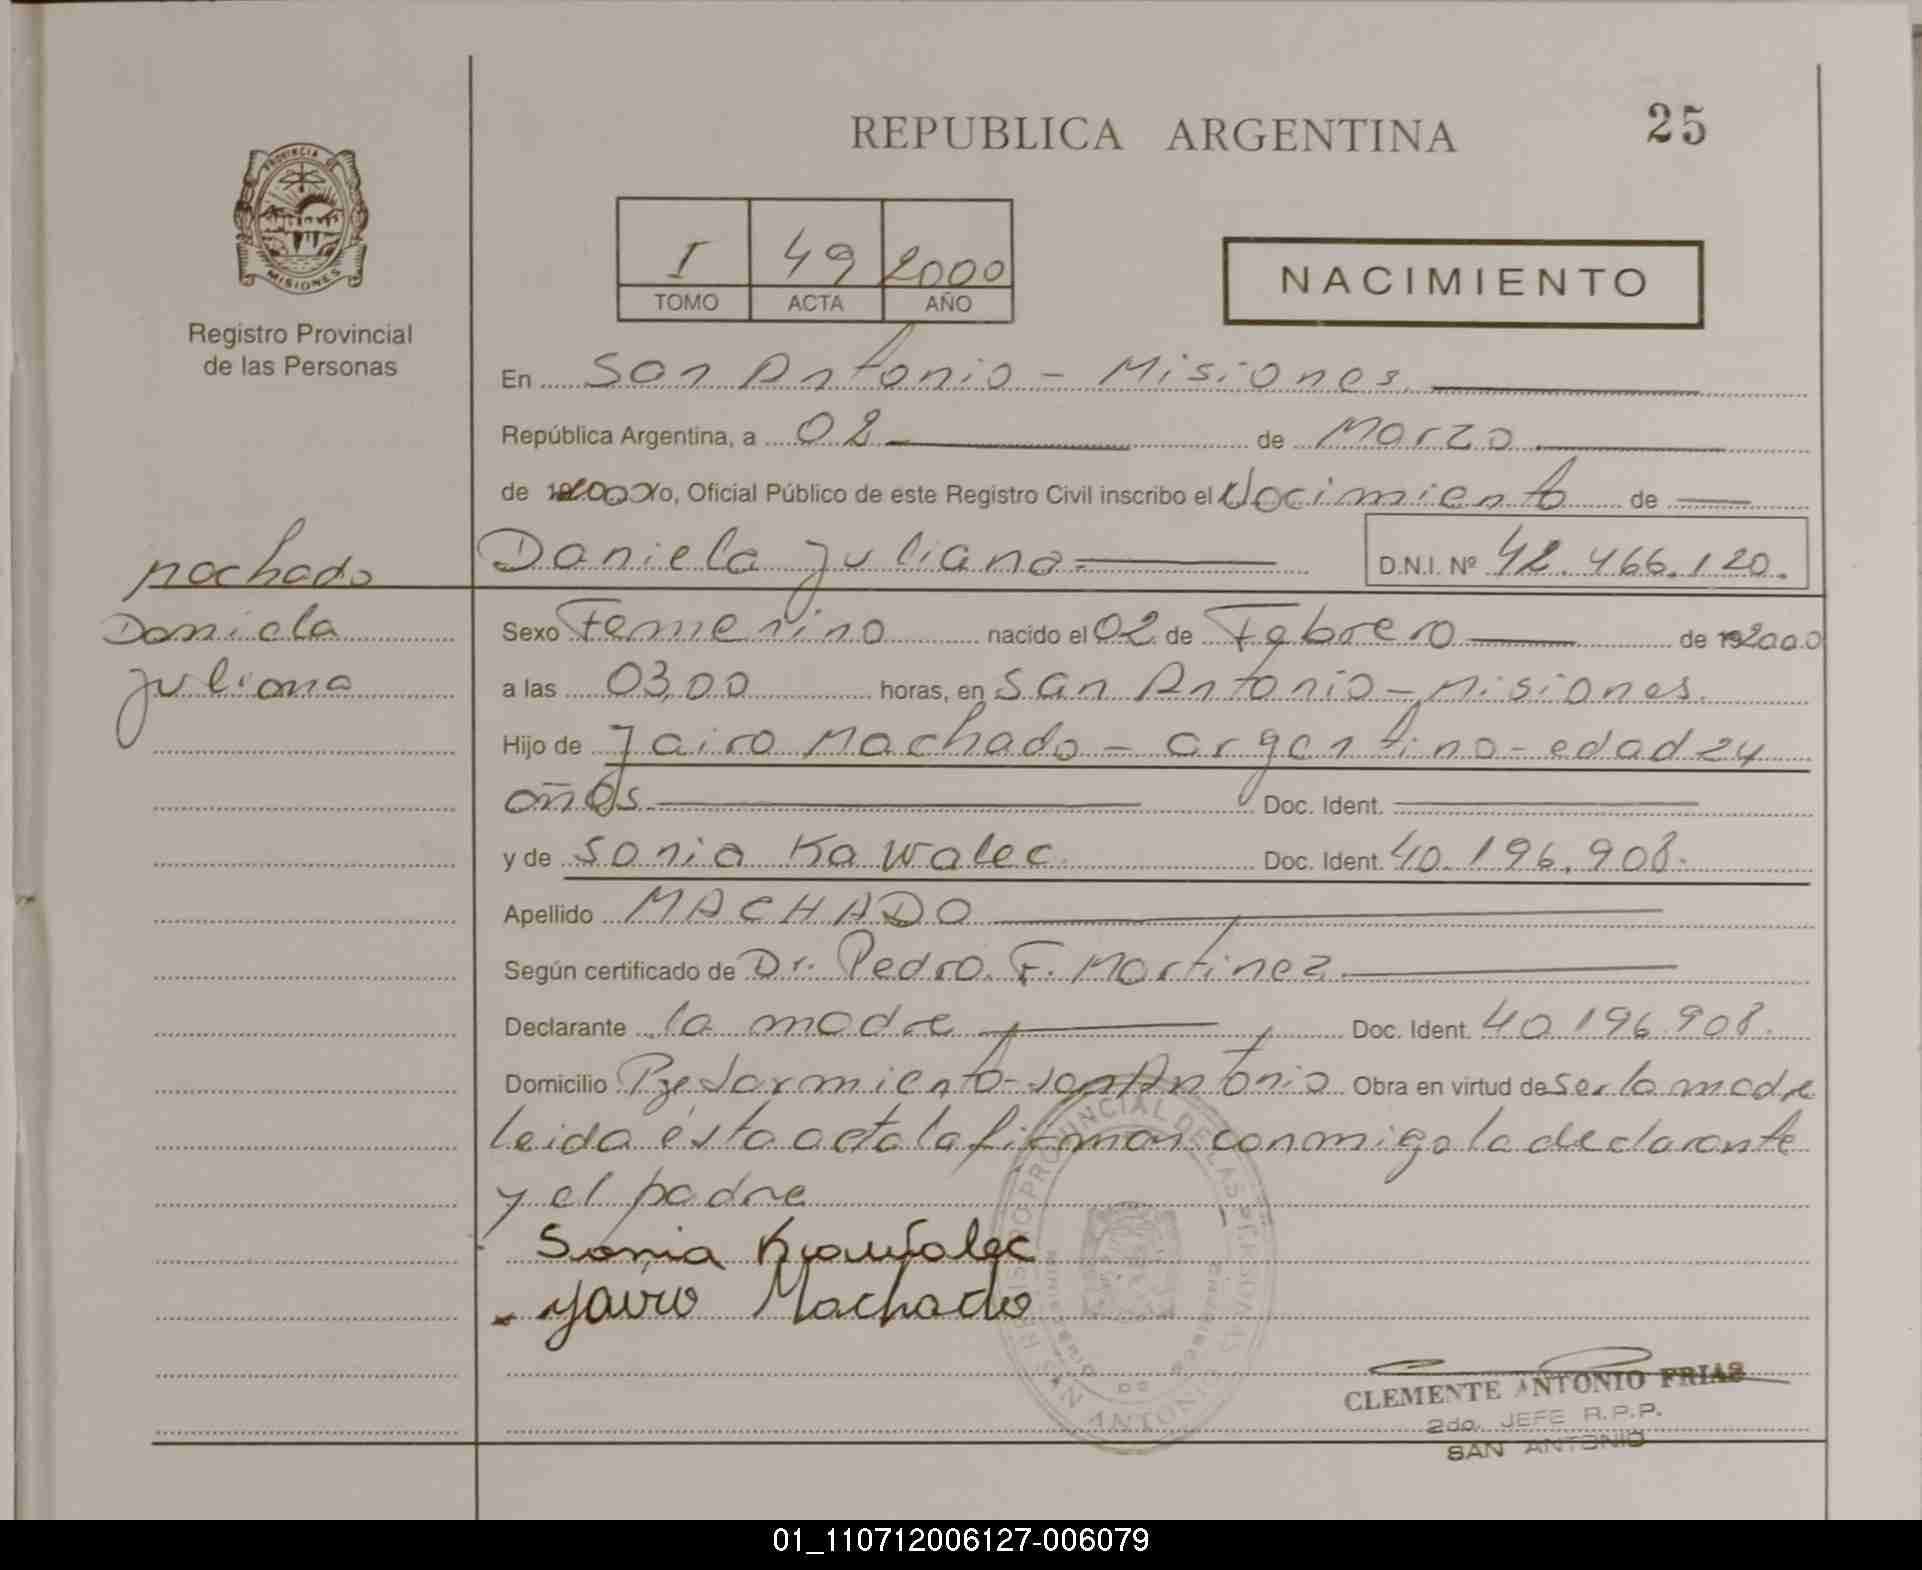 REPUBLICA ARGENTINA
25
PROVINCIA DE
MISIONES
Registro Provincial
de las Personas
I 49 2000
TOMO ACTA AÑO
NACIMIENTO
En San Antonio - Misiones
República Argentina, a 02 de Marzo
de 2000 Yo, Oficial Público de este Registro Civil inscribo el Nacimiento de
Machado
Daniela Juliana D.N.I. Nº 42.466.120.
Daniela
Sexo Femenino nacido el 02 de Febrero de 192000
Juliana
a las 03,00 horas, en San Antonio - Misiones.
Hijo de Jairo Machado - argentino - edad 24
años Doc. Ident.
y de Sonia Kawalec Doc. Ident. 40.196.908.
Apellido MACHADO
Según certificado de Dr. Pedro F. Martinez
Declarante la madre Doc. Ident. 40.196.908.
Domicilio Pje Sarmiento - San Antonio Obra en virtud de ser la madre
leida ésta acta la firman conmigo la declarante
y el padre
Sonia Kawalec
Jairo Machado
REGISTRO PROVINCIAL DE LAS PERSONAS
SAN ANTONIO
CLEMENTE ANTONIO FRIAS
2do. JEFE R.P.P.
SAN ANTONIO
01_110712006127-006079